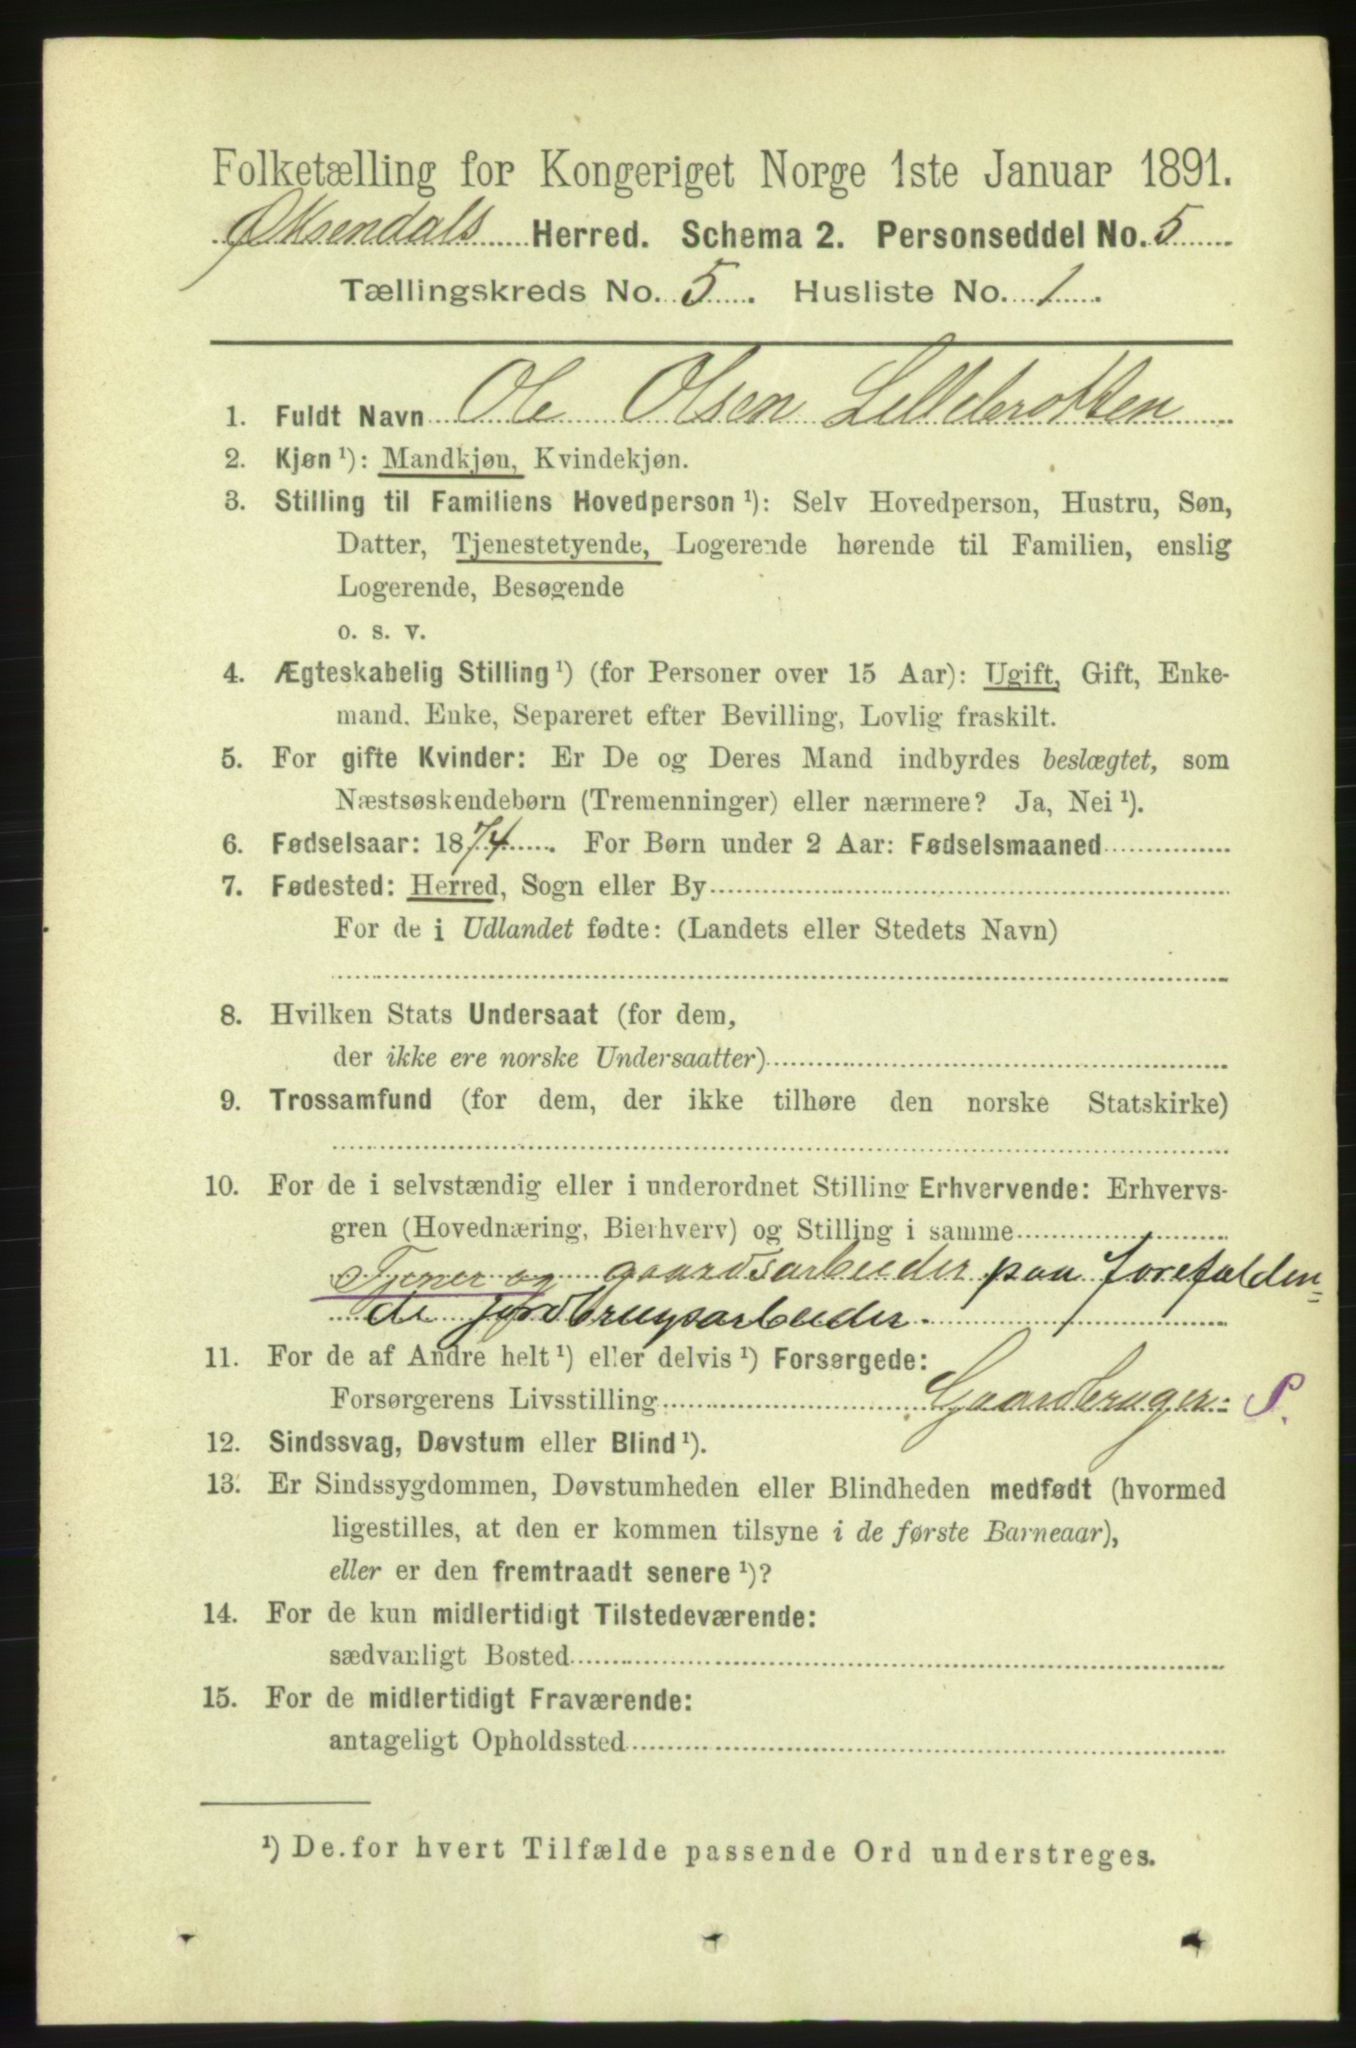 Folketælling for Kongeriget Norge 1ste Januar 1891.
Øksendals Herred. Schema 2. Personseddel No. 5
Tællingskreds No. 5. Husliste No. 1.
1. Fuldt Navn Ole Olsen Lillebrotten
2. Kjøn ¹): Mandkjøn, Kvindekjøn.
3. Stilling til Familiens Hovedperson ¹): Selv Hovedperson, Hustru, Søn,
Datter, Tjenestetyende, Logerende hørende til Familien, enslig
Logerende, Besøgende
o. s. v.
4. Ægteskabelig Stilling ¹) (for Personer over 15 Aar): Ugift, Gift, Enke-
mand, Enke, Separeret efter Bevilling, Lovlig fraskilt.
5. For gifte Kvinder: Er De og Deres Mand indbyrdes beslægtet, som
Næstsøskendebørn (Tremenninger) eller nærmere? Ja, Nei ¹).
6. Fødselsaar: 1874. For Børn under 2 Aar: Fødselsmaaned
7. Fødested: Herred, Sogn eller By
For de i Udlandet fødte: (Landets eller Stedets Navn)
8. Hvilken Stats Undersaat (for dem,
der ikke ere norske Undersaatter)
9. Trossamfund (for dem, der ikke tilhøre den norske Statskirke)
10. For de i selvstændig eller i underordnet Stilling Erhvervende: Erhvervs-
gren (Hovednæring, Bierhverv) og Stilling i samme
Tjener og gaardsarbeider paa forefalden=
de jordbrugsarbeider.
11. For de af Andre helt ¹) eller delvis ¹) Forsørgede:
Forsørgerens Livsstilling Gaardbruger: S.
12. Sindssvag, Døvstum eller Blind ¹).
13. Er Sindssygdommen, Døvstumheden eller Blindheden medfødt (hvormed
ligestilles, at den er kommen tilsyne i de første Barneaar),
eller er den fremtraadt senere ¹)?
14. For de kun midlertidigt Tilstedeværende:
sædvanligt Bosted
15. For de midlertidigt Fraværende:
antageligt Opholdssted
¹) De for hvert Tilfælde passende Ord understreges.